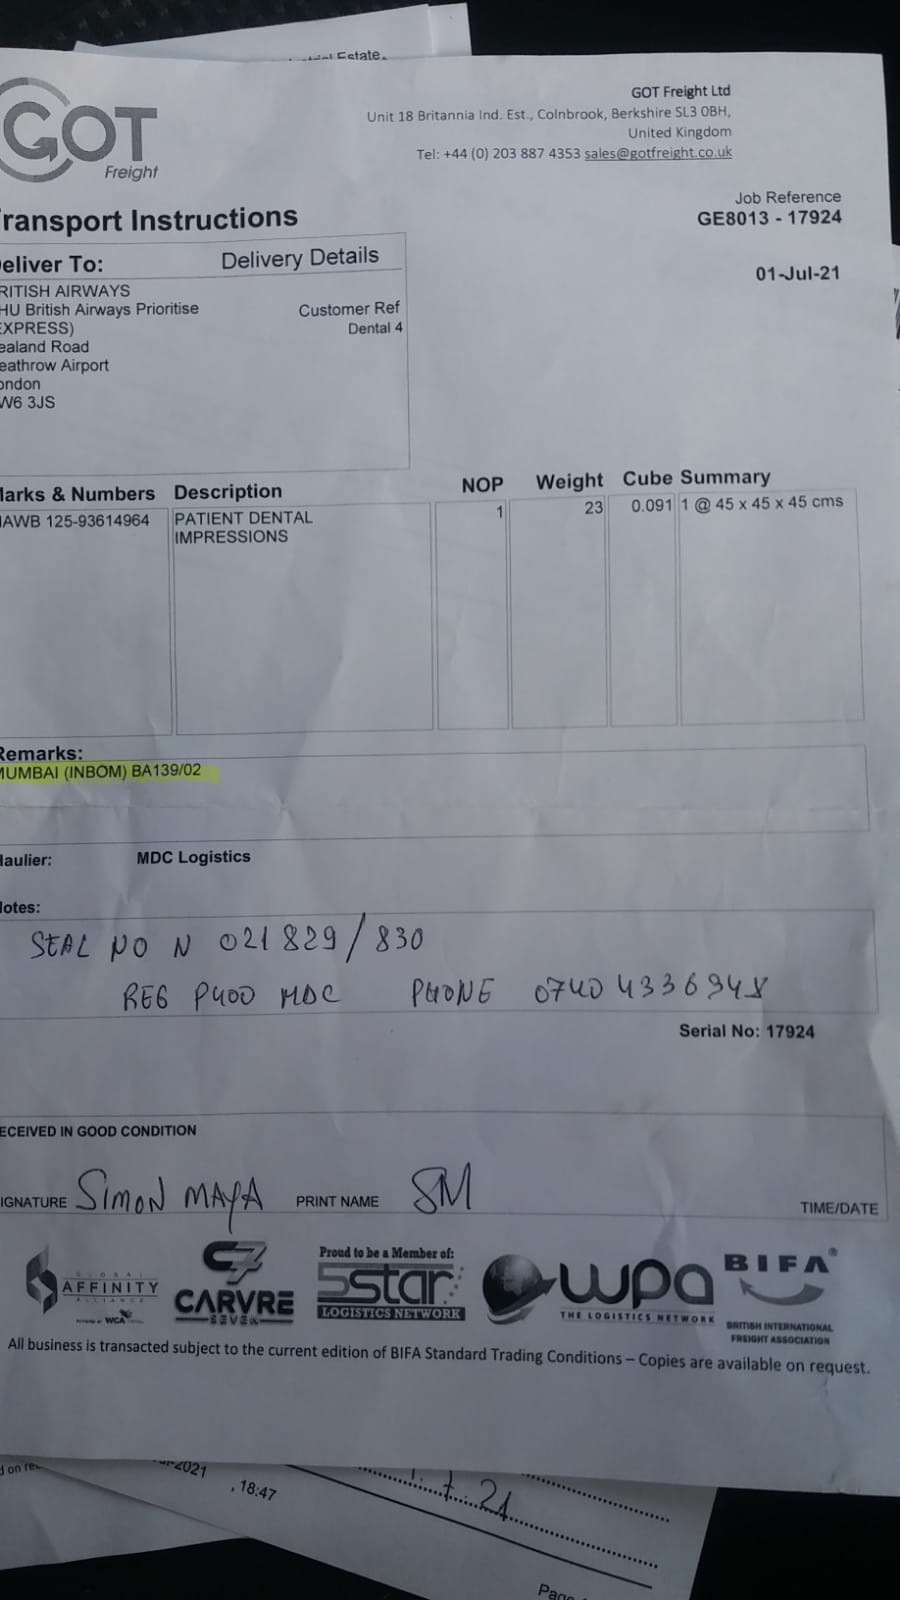 trial Estate,
GOT
Freight
GOT Freight Ltd
Unit 18 Britannia Ind. Est., Colnbrook, Berkshire SL3 0BH,
United Kingdom
Tel: +44 (0) 203 887 4353 sales@gotfreight.co.uk
Job Reference
GE8013 - 17924
01-Jul-21
ransport Instructions
eliver To:
Delivery Details
RITISH AIRWAYS
HU British Airways Prioritise
EXPRESS)
ealand Road
eathrow Airport
ondon
W6 3JS
Customer Ref
Dental 4
arks & Numbers Description NOP Weight Cube Summary
AWB 125-93614964 PATIENT DENTAL 1 23 0.091 1 @ 45 x 45 x 45 cms
IMPRESSIONS
Remarks:
MUMBAI (INBOM) BA139/02
aulier: MDC Logistics
otes:
SEAL NO N 021829/830
REG P400 MDC PHONE 07404336948
Serial No: 17924
ECEIVED IN GOOD CONDITION
IGNATURE SIMON MAYA PRINT NAME SM TIME/DATE
GLOBAL
AFFINITY
ALLIANCE
WCA
CARVRE
SEVEN
Proud to be a Member of:
5star
LOGISTICS NETWORK
wpa
THE LOGISTICS NETWORK
BIFA®
BRITISH INTERNATIONAL
FREIGHT ASSOCIATION
All business is transacted subject to the current edition of BIFA Standard Trading Conditions – Copies are available on request.
d on re
-2021
, 18:47
1.7.21
Page